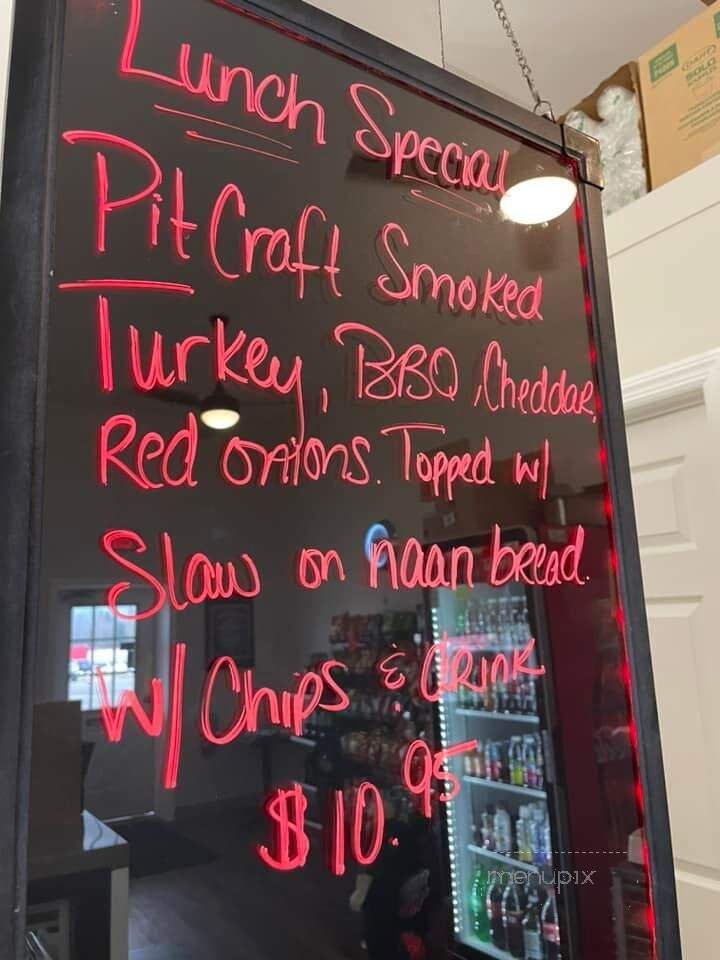 Lunch Special
Pit Craft Smoked
Turkey, BBQ, Cheddar,
Red onions. Topped w/
Slaw on naan bread.
w/ Chips & drink
$10.95
menupix
SOLO